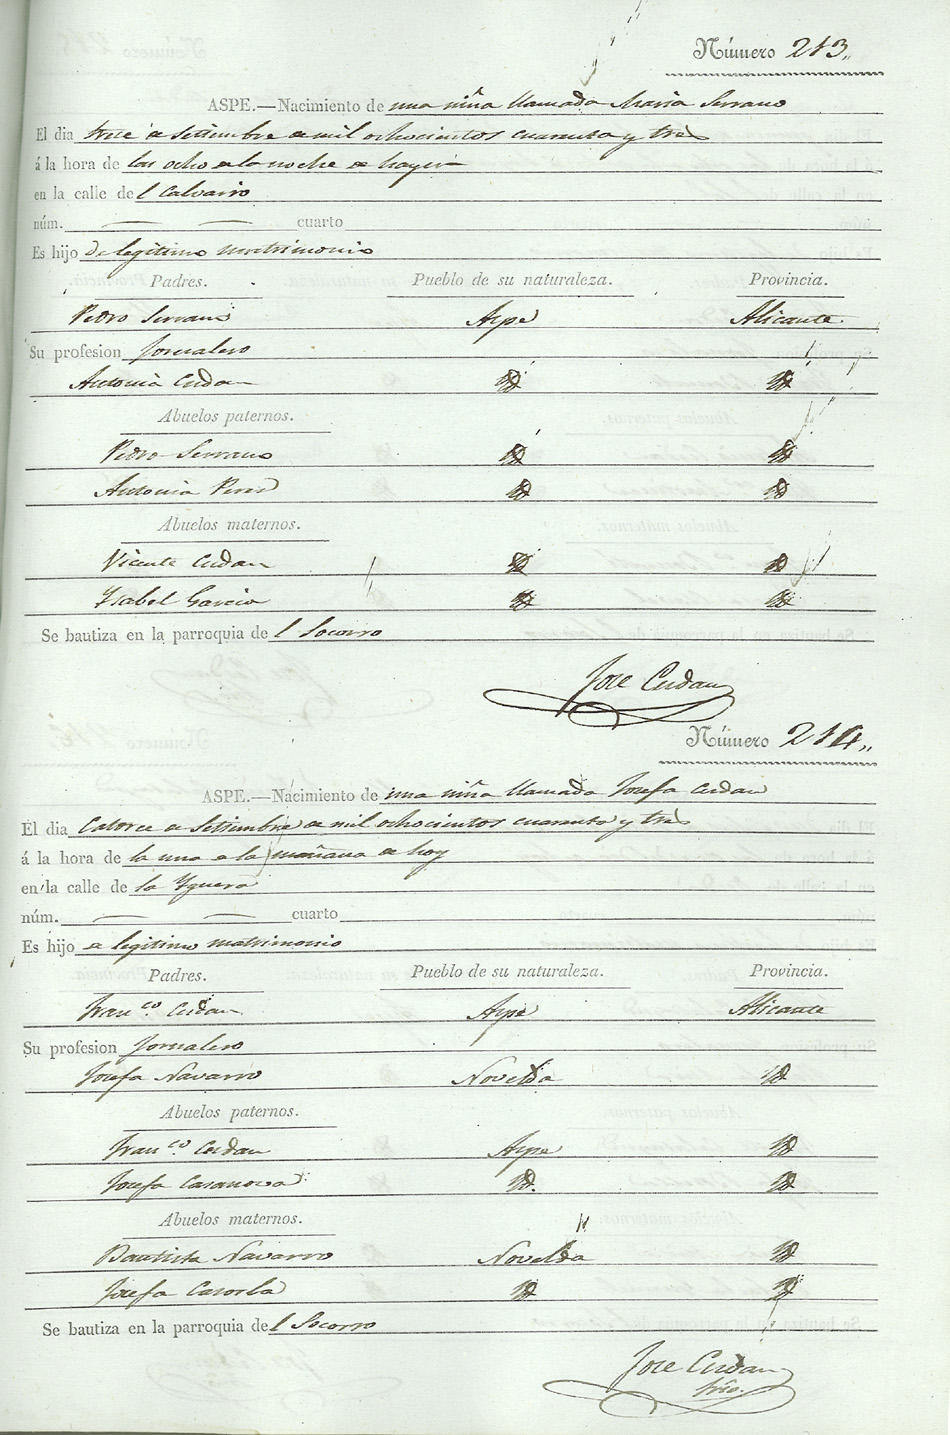 Número 213.
ASPE.—Nacimiento de una niña llamada Maria Serrano
El dia trece de Setiembre de mil ochocientos cuarenta y tres
á la hora de las ocho de la noche de hayer
en la calle de l Calvario
núm. — — cuarto
Es hijo de legitimo matrimonio
Padres. Pueblo de su naturaleza. Provincia.
Pedro Serrano Aspe Alicante
Su profesion Jornalero
Antonia Cerdan Yd Yd
Abuelos paternos.
Pedro Serrano Yd Yd
Antonia Perez Yd Yd
Abuelos maternos.
Vicente Cerdan Yd Yd
Ysabel Garcia Yd Yd
Se bautiza en la parroquia de l Socorro
Jose Cerdan
Número 214.
ASPE.—Nacimiento de una niña llamada Josefa Cerdan
El dia Catorce de Setiembre de mil ochocientos cuarenta y tres
á la hora de la una de la mañana de hoy
en la calle de la Yguera
núm. — — cuarto
Es hijo de legitimo matrimonio
Padres. Pueblo de su naturaleza. Provincia.
Franco. Cerdan Aspe Alicante
Su profesion Jornalero
Josefa Navarro Novelda Yd
Abuelos paternos.
Franco. Cerdan Aspe Yd
Josefa Casanova Yd. Yd
Abuelos maternos.
Bautista Navarro Novelda Yd
Josefa Cazorla Yd Yd
Se bautiza en la parroquia de l Socorro
Jose Cerdan